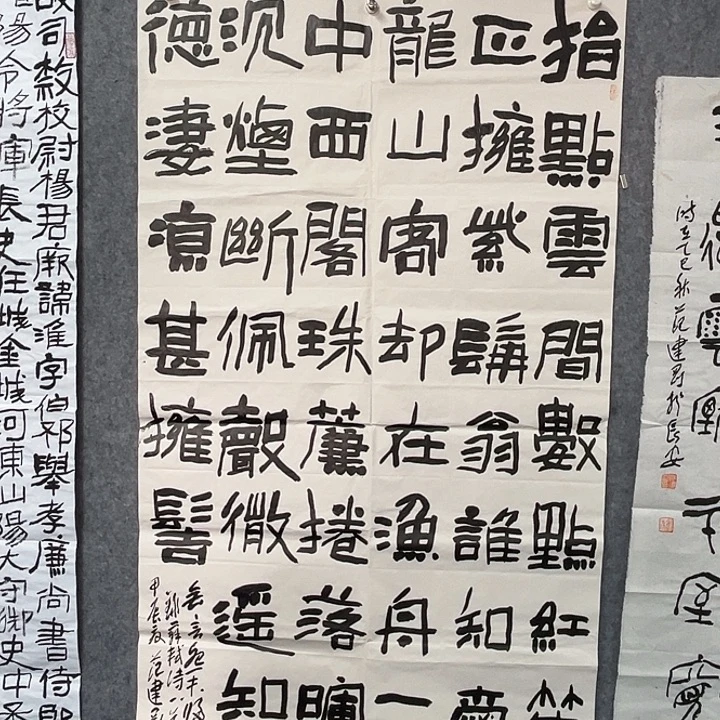 時在乙巳秋范建
於長安
指點雲間數點紅笙
正擁紫髯翁誰知愛
龍山客却在漁舟一
中西閣珠簾捲落暉
沉煙斷佩聲微遥知
德凄凉甚擁髻
無言怨未歸
録蘇軾詩一首
甲辰夏范建
故司隸校尉楊君厥諱淮字伯邳舉孝廉尚書侍郎
陽令將軍長史任城金城河東山陽大守御史中丞